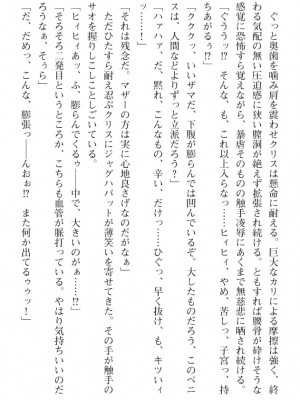 ぐっと奥歯を噛み肩を震わせクリスは懸命に耐える。巨大なカリによる摩擦は強く、終
わる気配の無い圧迫感に狭い膣洞が絶えず拡張され続ける。ともすれば腰骨が砕けそうな
感覚に恐怖すら覚えながら、暴虐そのものの触手凌辱にあくまで無慈悲に晒され続ける。
「ぐううッ！　そんな、も、これ以上入らなっ――ヒィヒィ、やめ、苦しっ、子宮っ、持
ちあがるぅ!?」
「ククッ、いいザマだ、下腹が膨らんでは凹んでいるぞ、大したものだろう、このペニ
スは、人間などよりずっと立派だろう？」
「ハァハァ、だ、黙れ、こんなもの、辛い、だけっ……ひぐっ、早く抜け、も、キツいィ
ッ……！」
「それは残念だ。マザーの方は実に心地良さげなのだがなぁ」
ただひたすら耐え忍ぶクリスにジャグハバットが薄笑いを寄せてきた。その手が触手の
サオを握りしこしこしごいている。
「ヒィヒィあッ、ふ、膨らんでくるゥ――中で、大きいのがぁ――!?」
「そろそろ一発目というところか、こちらも血管が脈打っている。やはり気持ちいいのだ
ろうなぁ、そぅら」
「だ、だめっ、こんな、膨張っ――んおぉ!?　また何か出てるゥゥッ！」